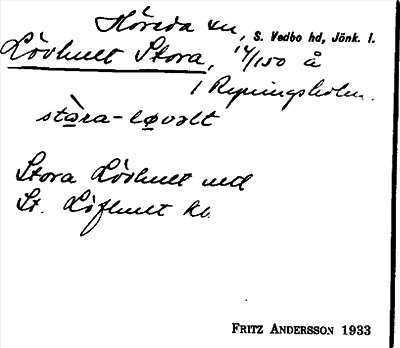 Höreda sn, S. Vedbo hd, Jönk. l.
Lövhult Stora, 1/4 150 å
1 Ryningsholm.
stàra-løvəlt
Stora Lövhult ued
St. Löfhult kb.
FRITZ ANDERSSON 1933